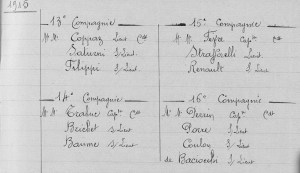 1915
13e Compagnie
M.M. Coppaz Lieut Ct
Saturni S/Lieut
Filippi S/Lieut
15e Compagnie
M.M. Capne Ct
Strafforelli S/Lieut
Renault S/Lieut
14e Compagnie
M.M. Capne Ct
Brichet S/Lieut
Baume S/Lieut
16e Compagnie
M.M. Perrin Capne Ct
S/Lieut
Coulon S/Lieut
de Baciocchi S/Lieut